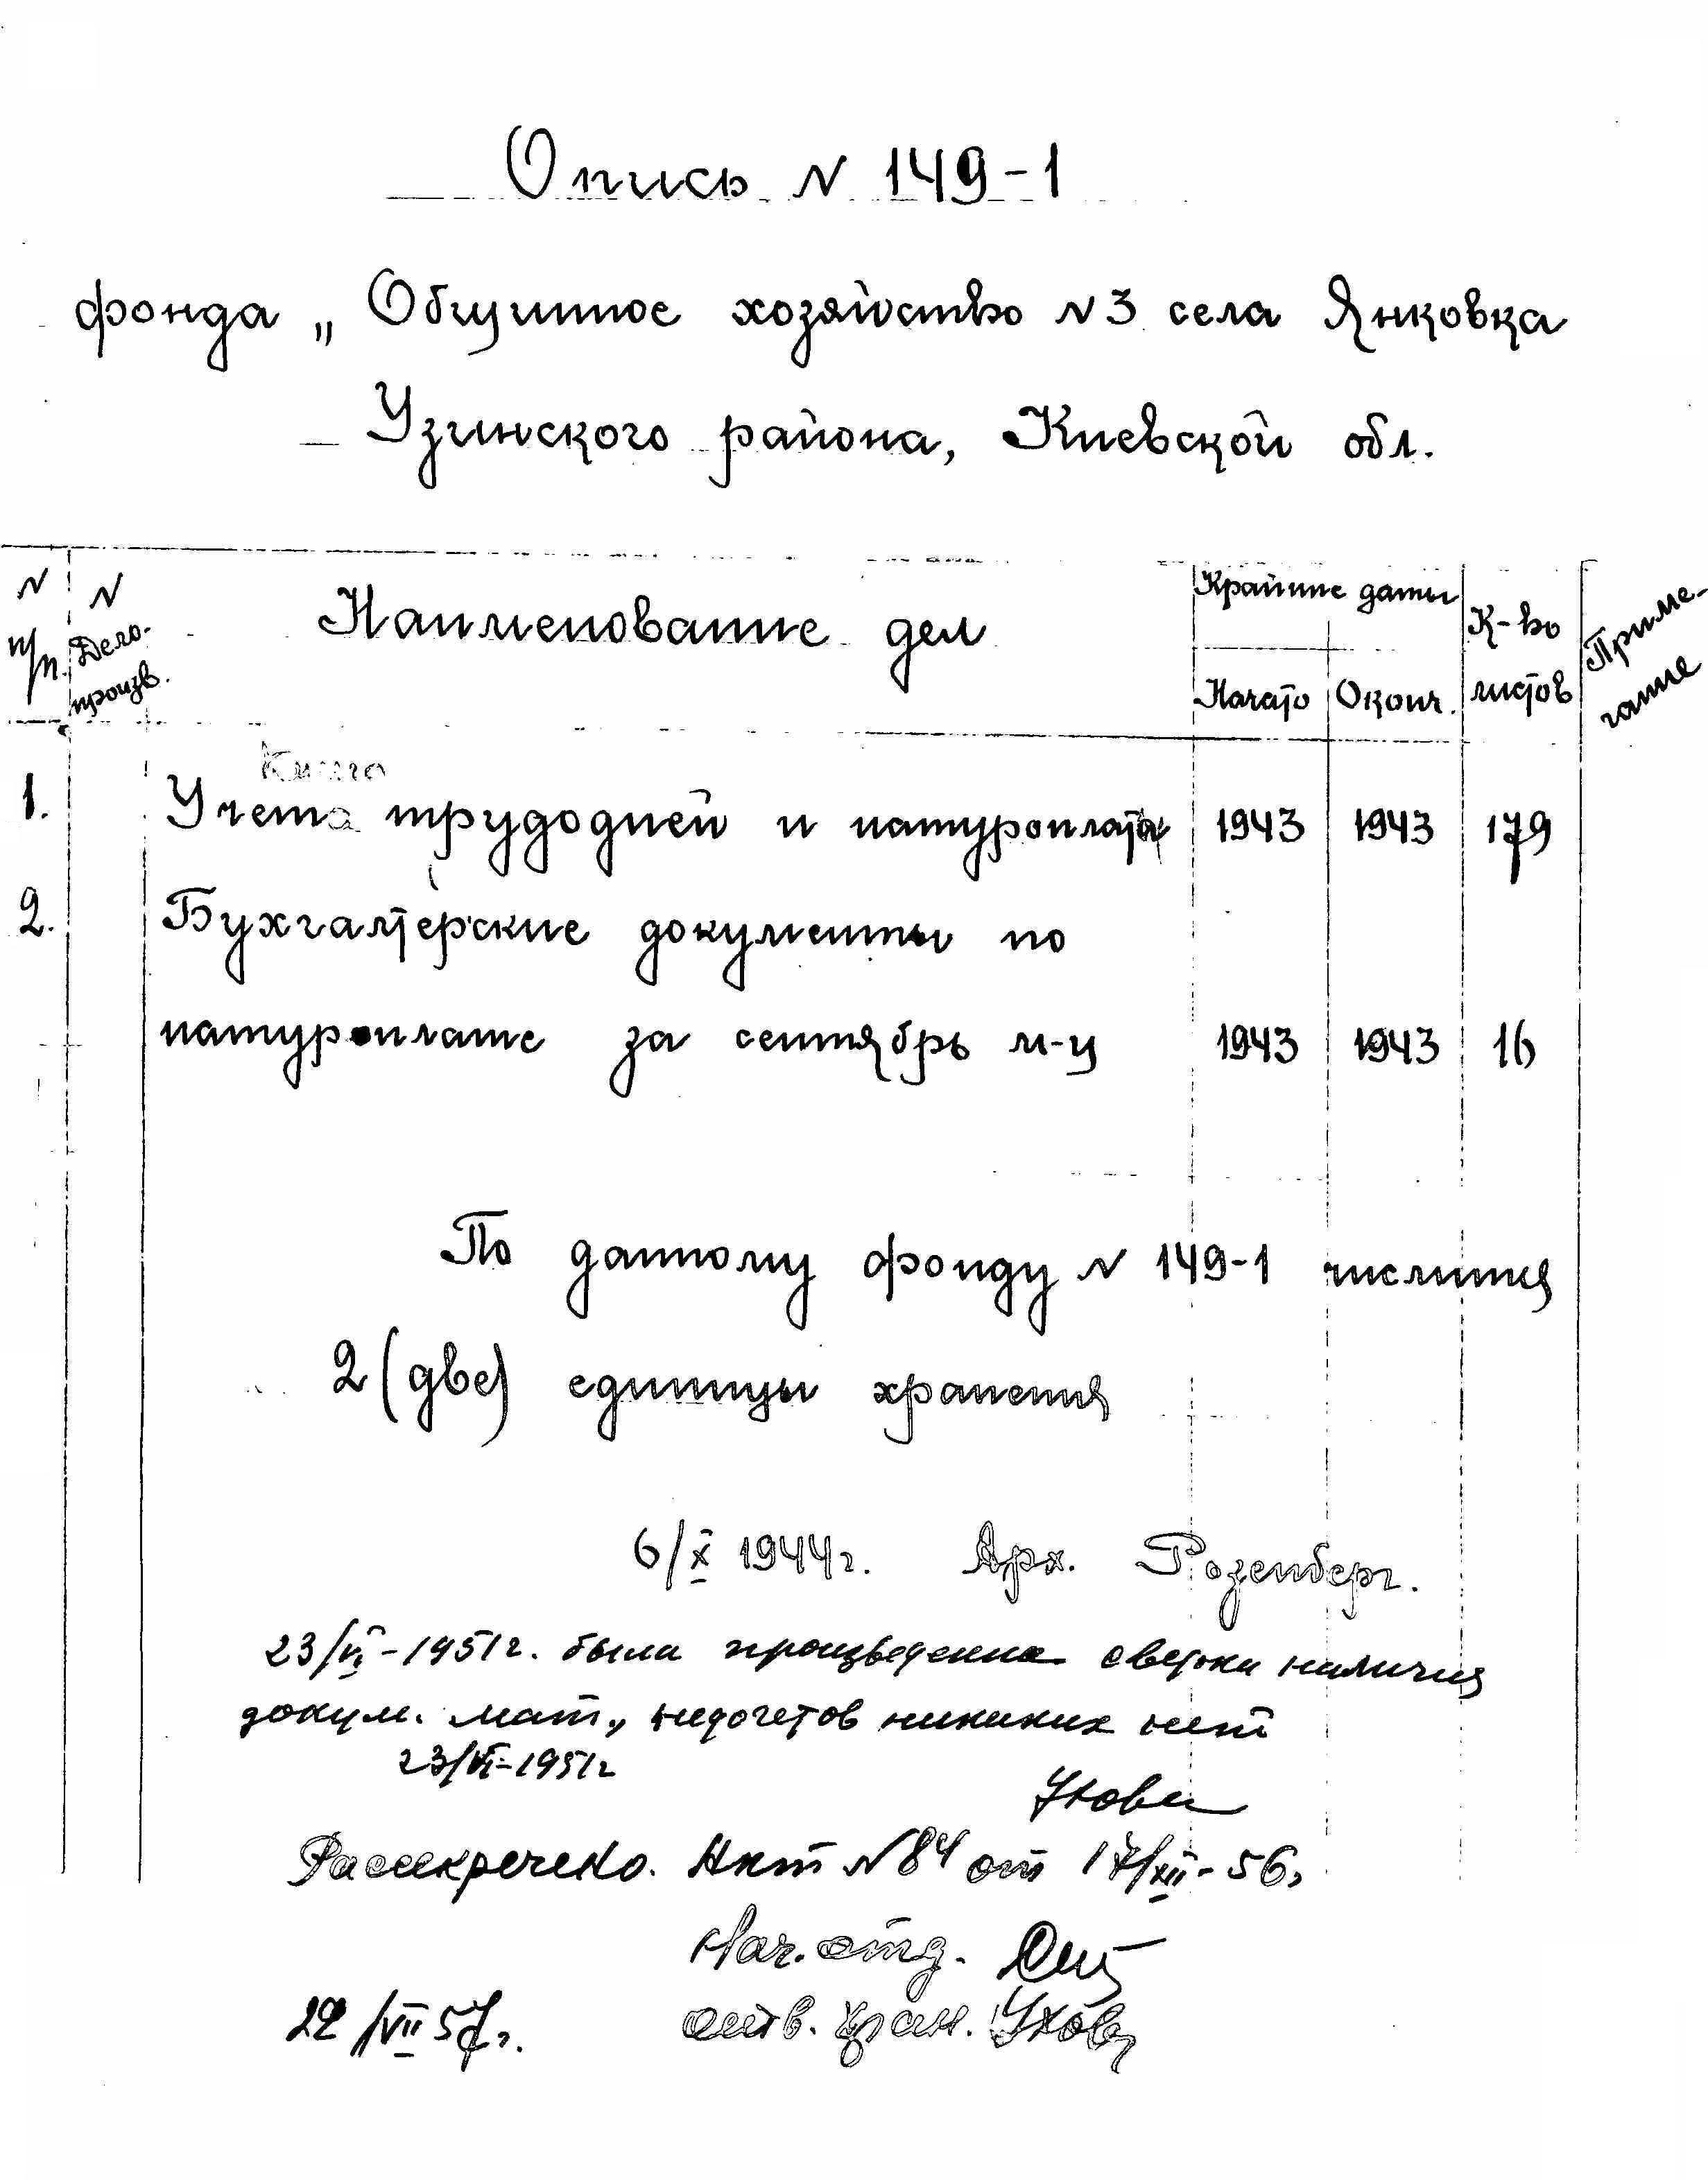 Опись N 149-1
фонда „ Общинное хозяйство N3 села Янковка
Узинского района, Киевской обл.
N п/п. N Дело-произв. Наименование дел Крайние даты К-во листов Приме-чание
Начато Оконч.
Книга
1. Учета трудодней и натуроплата 1943 1943 179
2. Бухгалтерские документы по
натуроплате за сентябрь м-ц 1943 1943 16
По данному фонду N 149-1 числится
2 (две) единицы хранения
6/X 1944г. Арх. Розенберг.
23/VI-1951г. была произведена сверка наличия
докум. мат., недочетов никаких нет
23/VI-1951г
Рассекречено. Акт N84 от 17/XII-56г
Нач. отд.
22/VII 57г. отв. хран.